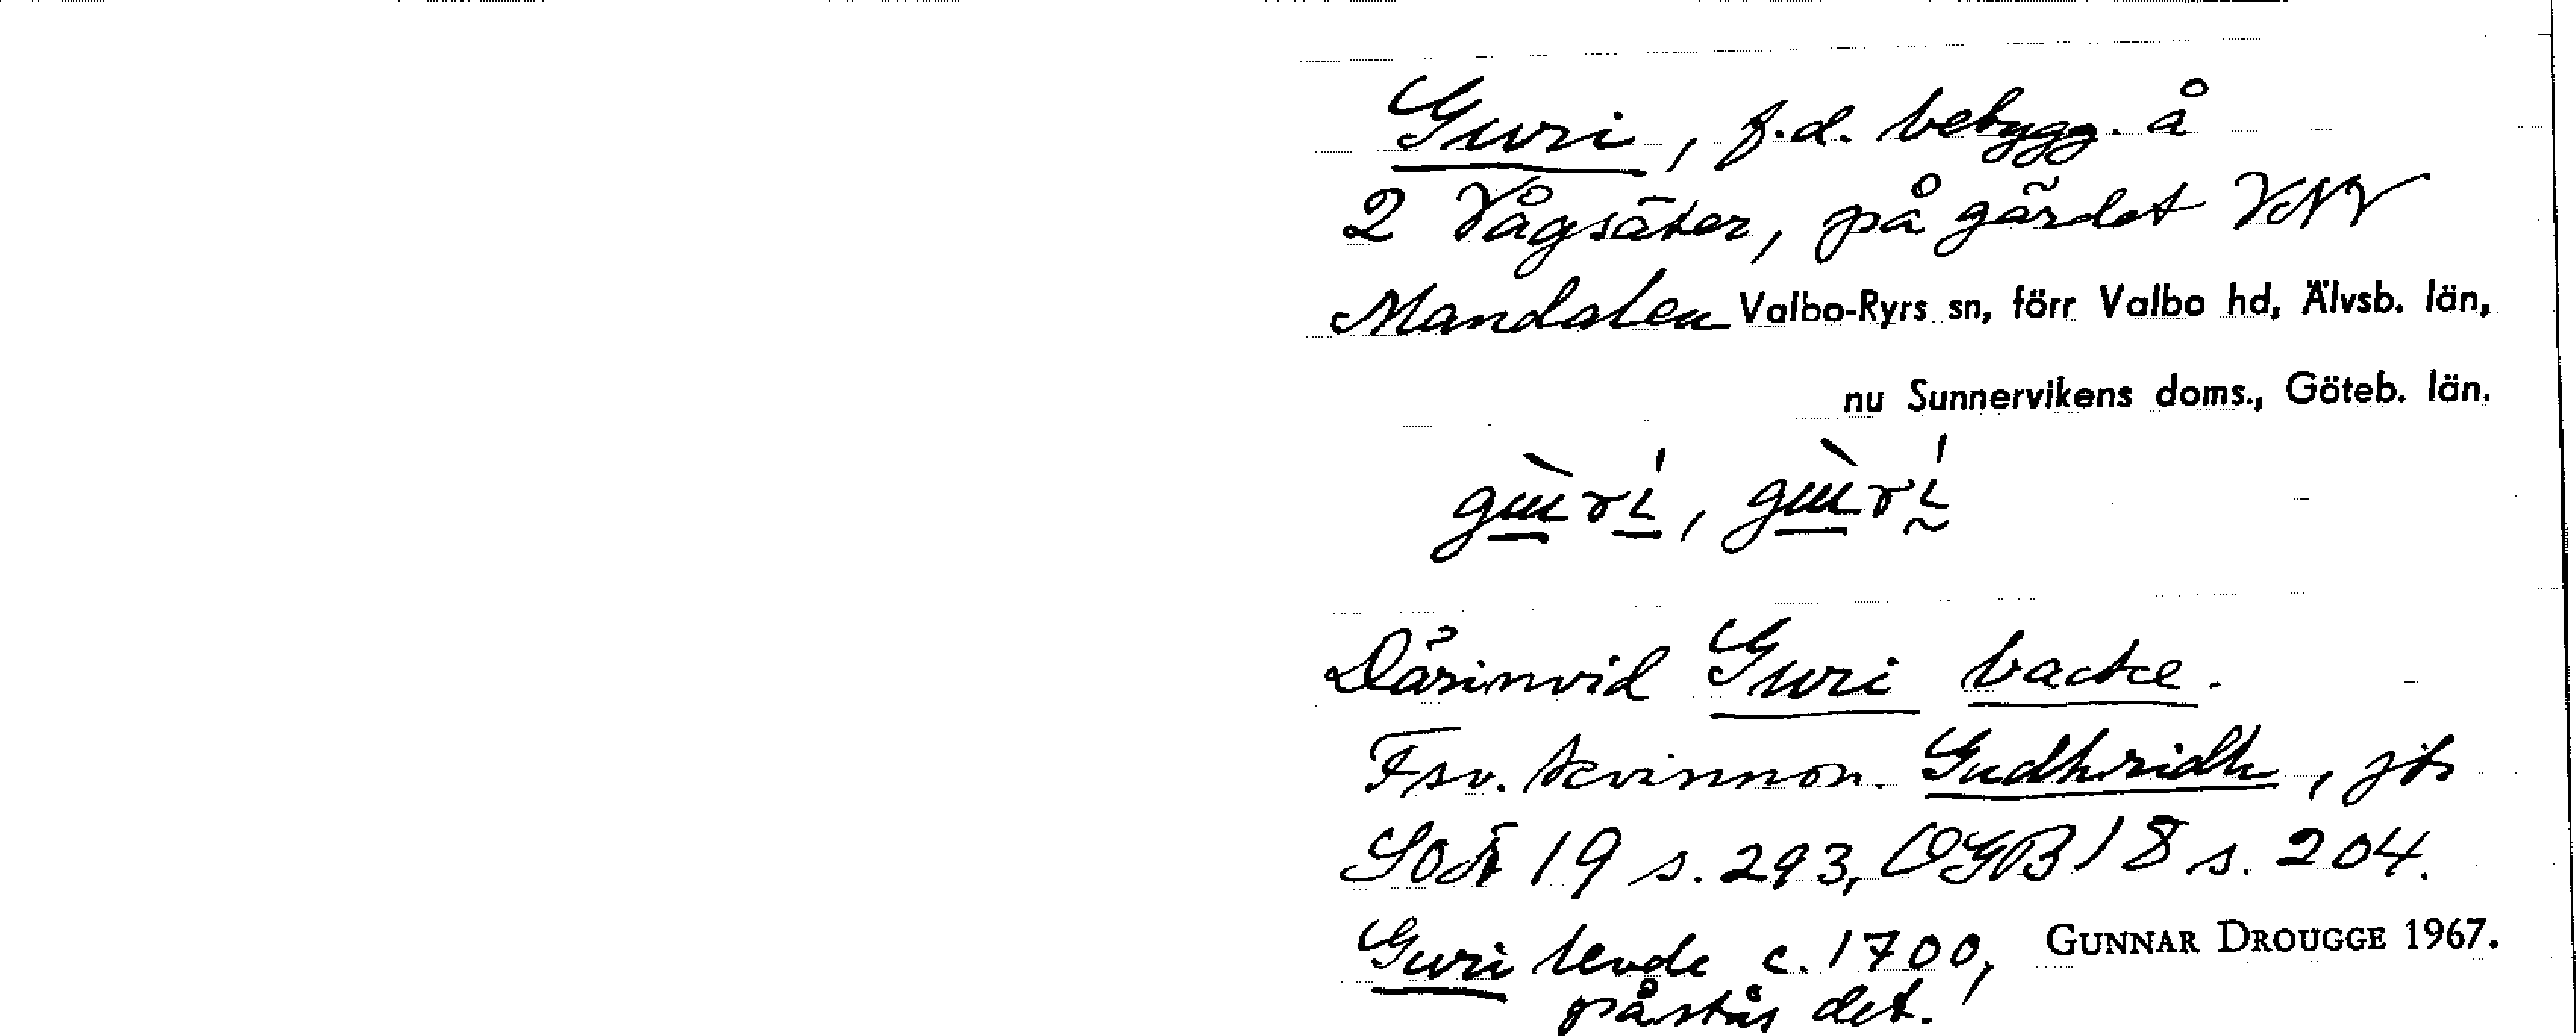 Guri, f.d. bebygg. å
2 Vågsäter, på gärdet VNV
Mandalen Valbo-Ryrs sn, förr Valbo hd, Älvsb. län,
nu Sunnervikens doms., Göteb. län.
Därinvid Guri backe.
Fsv. kvinnon. Gudhridh, jfr
SOÄ 19 s. 293, OGB 18 s. 204.
Guri levde c. 1700, GUNNAR DROUGGE 1967.
påstås det.